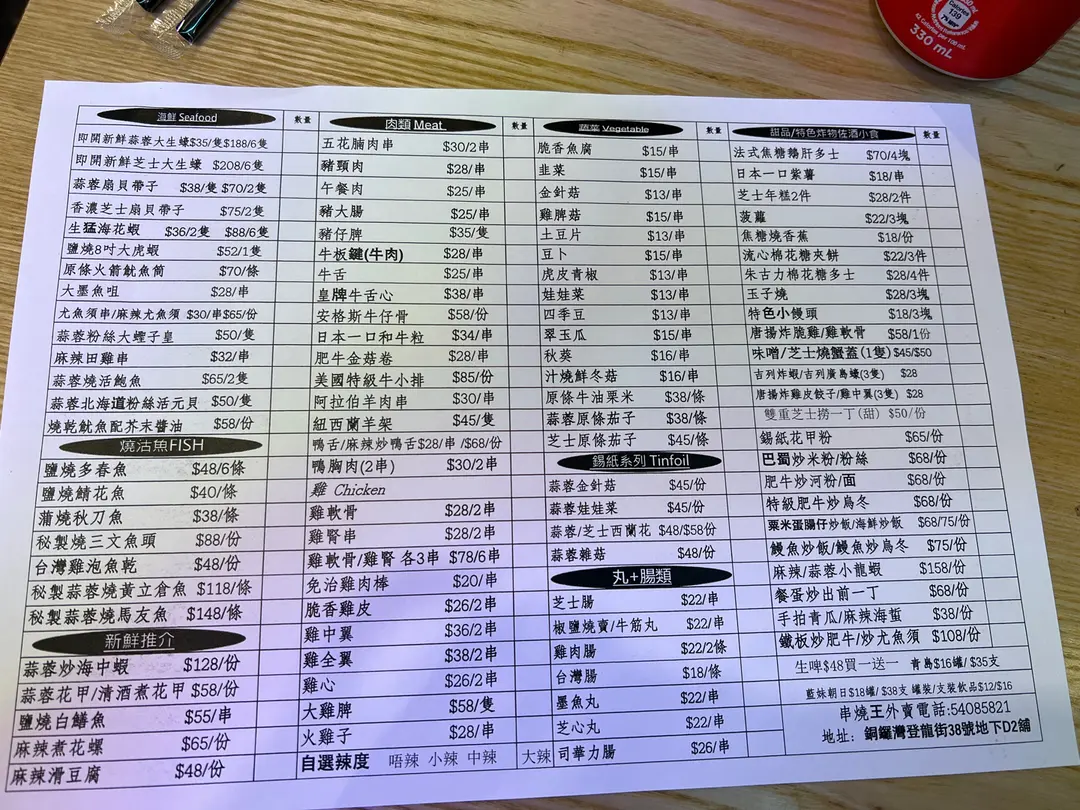 Calories
139
42 Calories per 100 mL
330 mL
海鮮 Seafood 數量
即開新鮮蒜蓉大生蠔$35/隻$188/6隻
即開新鮮芝士大生蠔 $208/6隻
蒜蓉扇貝帶子 $38/隻 $70/2隻
香濃芝士扇貝帶子 $75/2隻
生猛海花蝦 $36/2隻 $88/6隻
鹽燒8吋大虎蝦 $52/1隻
原條火箭魷魚筒 $70/條
大墨魚咀 $28/串
尤魚須串/麻辣尤魚須 $30/串$65/份
蒜蓉粉絲大蟶子皇 $50/隻
麻辣田雞串 $32/串
蒜蓉燒活鮑魚 $65/2隻
蒜蓉北海道粉絲活元貝 $50/隻
燒乾魷魚配芥末醬油 $58/份
燒沽魚FISH
鹽燒多春魚 $48/6條
鹽燒鯖花魚 $40/條
蒲燒秋刀魚 $38/條
秘製燒三文魚頭 $88/份
台灣雞泡魚乾 $48/份
秘製蒜蓉燒黃立倉魚 $118/條
秘製蒜蓉燒馬友魚 $148/條
新鮮推介
蒜蓉炒海中蝦 $128/份
蒜蓉花甲/清酒煮花甲 $58/份
鹽燒白鱔魚 $55/串
麻辣煮花螺 $65/份
麻辣滑豆腐 $48/份
肉類 Meat 數量
五花腩肉串 $30/2串
豬頸肉 $28/串
午餐肉 $25/串
豬大腸 $25/串
豬仔脾 $35/隻
牛板鍵(牛肉) $28/串
牛舌 $25/串
皇牌牛舌心 $38/串
安格斯牛仔骨 $58/份
日本一口和牛粒 $34/串
肥牛金菇卷 $28/串
美國特級牛小排 $85/份
阿拉伯羊肉串 $30/串
紐西蘭羊架 $45/隻
鴨舌/麻辣炒鴨舌$28/串 /$68/份
鴨胸肉(2串) $30/2串
雞 Chicken
雞軟骨 $28/2串
雞腎串 $28/2串
雞軟骨/雞腎 各3串 $78/6串
免治雞肉棒 $20/串
脆香雞皮 $26/2串
雞中翼 $36/2串
雞全翼 $38/2串
雞心 $26/2串
大雞脾 $58/隻
火雞子 $28/串
自選辣度 唔辣 小辣 中辣 大辣
蔬菜 Vegetable 數量
脆香魚腐 $15/串
韭菜 $15/串
金針菇 $13/串
雞脾菇 $15/串
土豆片 $13/串
豆卜 $15/串
虎皮青椒 $13/串
娃娃菜 $13/串
四季豆 $13/串
翠玉瓜 $15/串
秋葵 $16/串
汁燒鮮冬菇 $16/串
原條牛油栗米 $38/條
蒜蓉原條茄子 $38/條
芝士原條茄子 $45/條
錫紙系列 Tinfoil
蒜蓉金針菇 $45/份
蒜蓉娃娃菜 $45/份
蒜蓉/芝士西蘭花 $48/$58份
蒜蓉雜菇 $48/份
丸+腸類
芝士腸 $22/串
椒鹽燒賣/牛筋丸 $22/串
雞肉腸 $22/2條
台灣腸 $18/條
墨魚丸 $22/串
芝心丸 $22/串
司華力腸 $26/串
甜品/特色炸物佐酒小食 數量
法式焦糖鵝肝多士 $70/4塊
日本一口紫薯 $18/串
芝士年糕2件 $28/2件
菠蘿 $22/3塊
焦糖燒香蕉 $18/份
流心棉花糖夾餅 $22/3件
朱古力棉花糖多士 $28/4件
玉子燒 $28/3塊
特色小饅頭 $18/3塊
唐揚炸脆雞/雞軟骨 $58/1份
味噌/芝士燒蟹蓋(1隻)$45/$50
吉列炸蝦/吉列廣島蠔(3隻) $28
唐揚炸雞皮餃子/雞中翼(3隻) $28
雙重芝士撈一丁(甜) $50/份
錫紙花甲粉 $65/份
巴蜀炒米粉/粉絲 $68/份
肥牛炒河粉/面 $68/份
特級肥牛炒烏冬 $68/份
粟米蛋腸仔炒飯/海鮮炒飯 $68/75/份
鰻魚炒飯/鰻魚炒烏冬 $75/份
麻辣/蒜蓉小龍蝦 $158/份
餐蛋炒出前一丁 $68/份
手拍青瓜/麻辣海蜇 $38/份
鐵板炒肥牛/炒尤魚須 $108/份
生啤$48買一送一 青島$16罐/ $35支
藍妹朝日$18罐/ $38支 罐裝/支裝飲品$12/$16
串燒王外賣電話:54085821
地址: 銅鑼灣登龍街38號地下D2舖